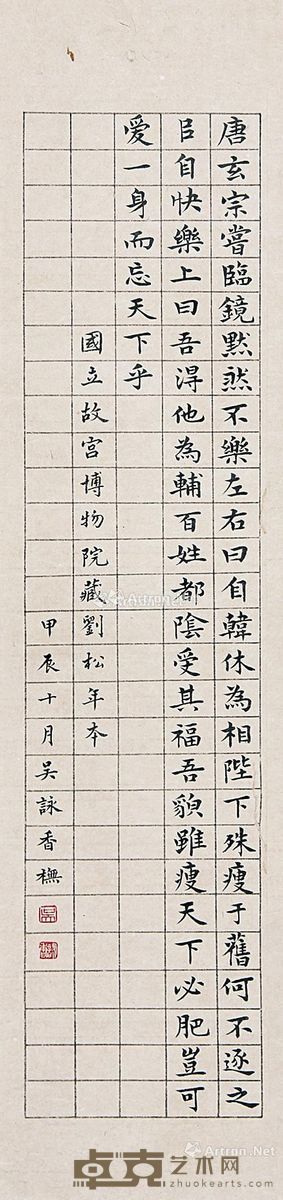 唐玄宗嘗臨鏡默然不樂左右曰自韓休為相陛下殊瘦于舊何不逐之
自快樂上曰吾得他為輔百姓都陰受其福吾貌雖瘦天下必肥豈可
爱一身而忘天下乎
國立故宫博物院藏劉松年本
甲辰十月吴詠香橅
Artron.Net
卓克艺术网
www.zhuokearts.com